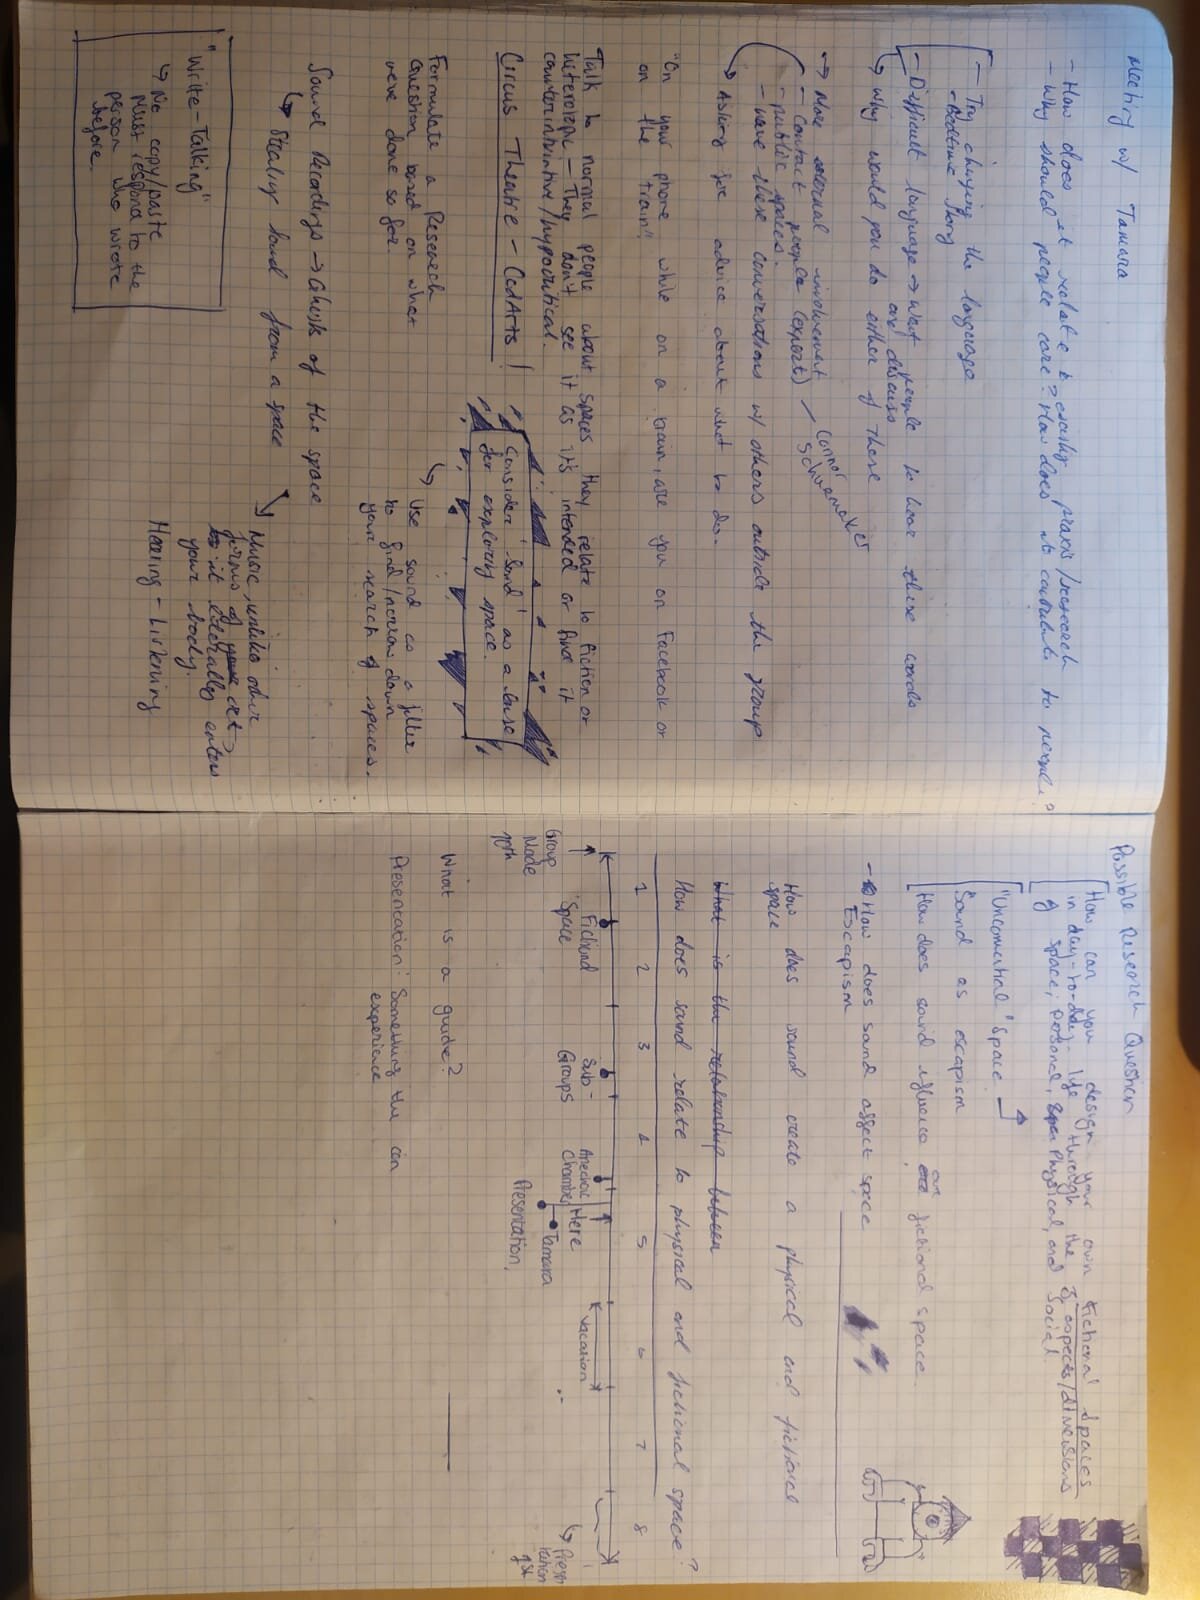 Meeting w/ Tamara
- How does it relate to existing praxis/research
- Why should people care? How does it contribute to people?
- Try changing the language
- Bedtime Story
- Difficult language → Want people to hear these words
and discuss
↳ why would you do either of these
→ More external involvement
- Contact people (expert) — Connor
Schuemaker
- public spaces.
- have these conversations w/ others outside the group
Asking for advice about what to do.
"On your phone while on a train, are you on Facebook or
on the train"
Talk to normal people about spaces they relate to fiction or
heterotopic - They don't see it as it's intended or find it
counterintuitive/hypocritical.
Circus Theatre - CodArts !
Consider 'Sound' as a base
for exploring space.
Formulate a Research
Question based on what
weve done so far.
↳ Use sound as a filter
to find/narrow down
your search of spaces.
Sound Recordings → Ghosts of the space
↳ Stealing Sound from a space
Music, unlike other
forms of your art,
it literally enters
your body.
Hearing - Listening
"Write-Talking"
↳ No copy/paste
Must respond to the
person who wrote
before.
Possible Research Question
How can you design your own Fictional Spaces
in day-to-day life through the 3 aspects/dimensions
of space; Personal, Physical, and Social.
Space
Sound as escapism
How does sound influence our fictional space
- How does sound affect space
Escapism
How does sound create a physical and fictional
space
What is the relationship between
How does sound relate to physical and fictional space?
1 2 3 4 5 6 7 8
Fictional
Space
Sub-
Groups
Anechoic
Chamber
Here
Vacation
Tamara
Presentation
Group
Made
10th
Presen
tation
1st
What is a guide?
Presentation: Something the can
experience